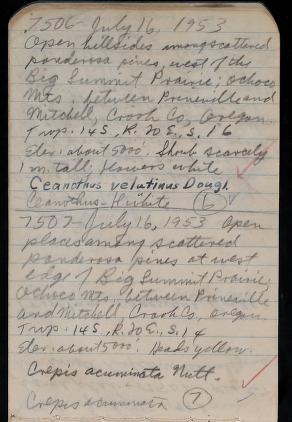 7506 - July 16, 1953
Open hillsides among scattered
ponderosa pines, west of the
Big Summit Prairie; Ochoco
Mts. between Prineville and
Mitchell, Crook Co, Oregon.
Twp. 14S, R. 20E., S. 16
Elev. about 5000'. Shrub scarcely
1 m. tall; flowers white
Ceanothus velutinus Dougl.
Ceanothus - White 6
7507 - July 16, 1953 Open
places among scattered
ponderosa pines at west
edge of Big Summit Prairie;
Ochoco Mts., between Prineville
and Mitchell, Crook Co., Oregon
Twp. 14S, R. 20E., S. 14
Elev. about 5000'. Heads yellow.
Crepis acuminata Nutt.
Crepis acuminata 7